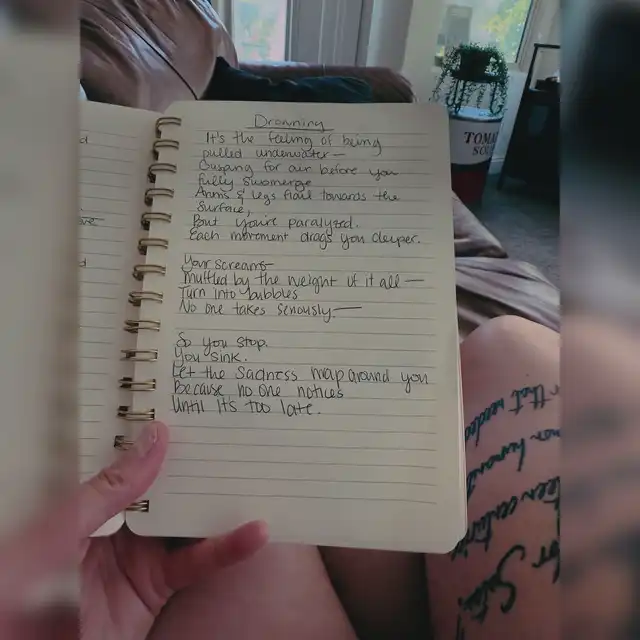 Drowning
It's the feeling of being
pulled underwater—
Gasping for air before you
fully submerge
Arms & legs flail towards the
Surface,
But you're paralyzed.
Each movement drags you deeper.
Your screams—
Muffled by the weight of it all—
Turn into bubbles
No one takes seriously—
So you stop.
You sink.
Let the sadness wrap around you
Because no one notices
Until it's too late.
TOMA
SOU
that needed